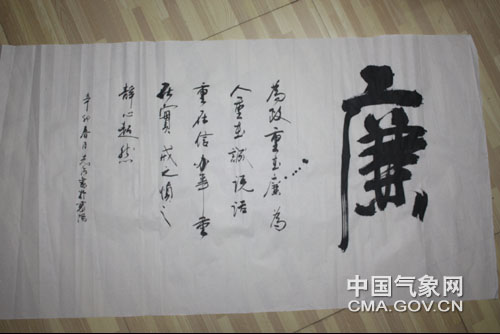 廉
為政重在廉為
人重在誠说话
重在信办事重
在實戒之慎之
静心超然
辛卯春月
中国气象网
CMA.GOV.CN